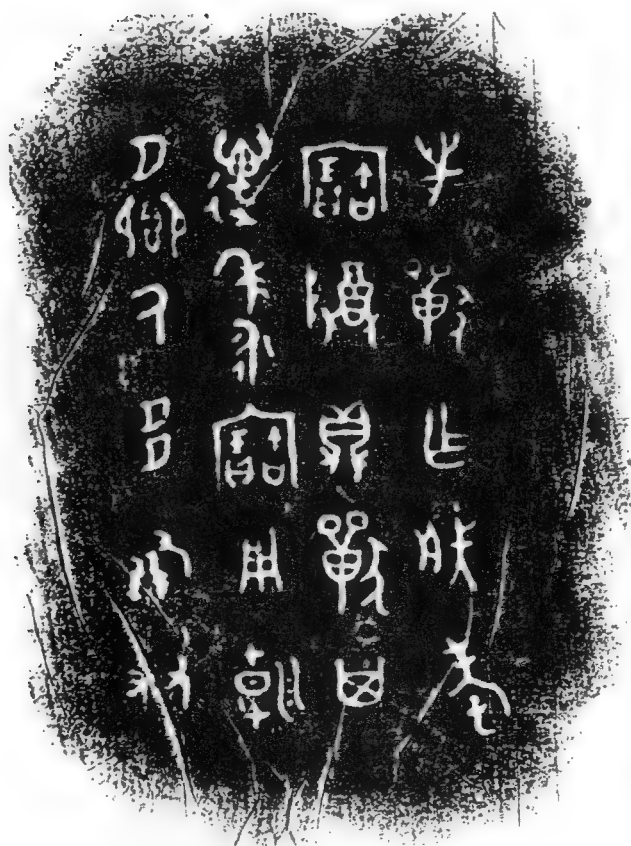 先獸乍朕考
寶尊鼎獸其
萬年永寶用朝
夕鄉厥多倗友